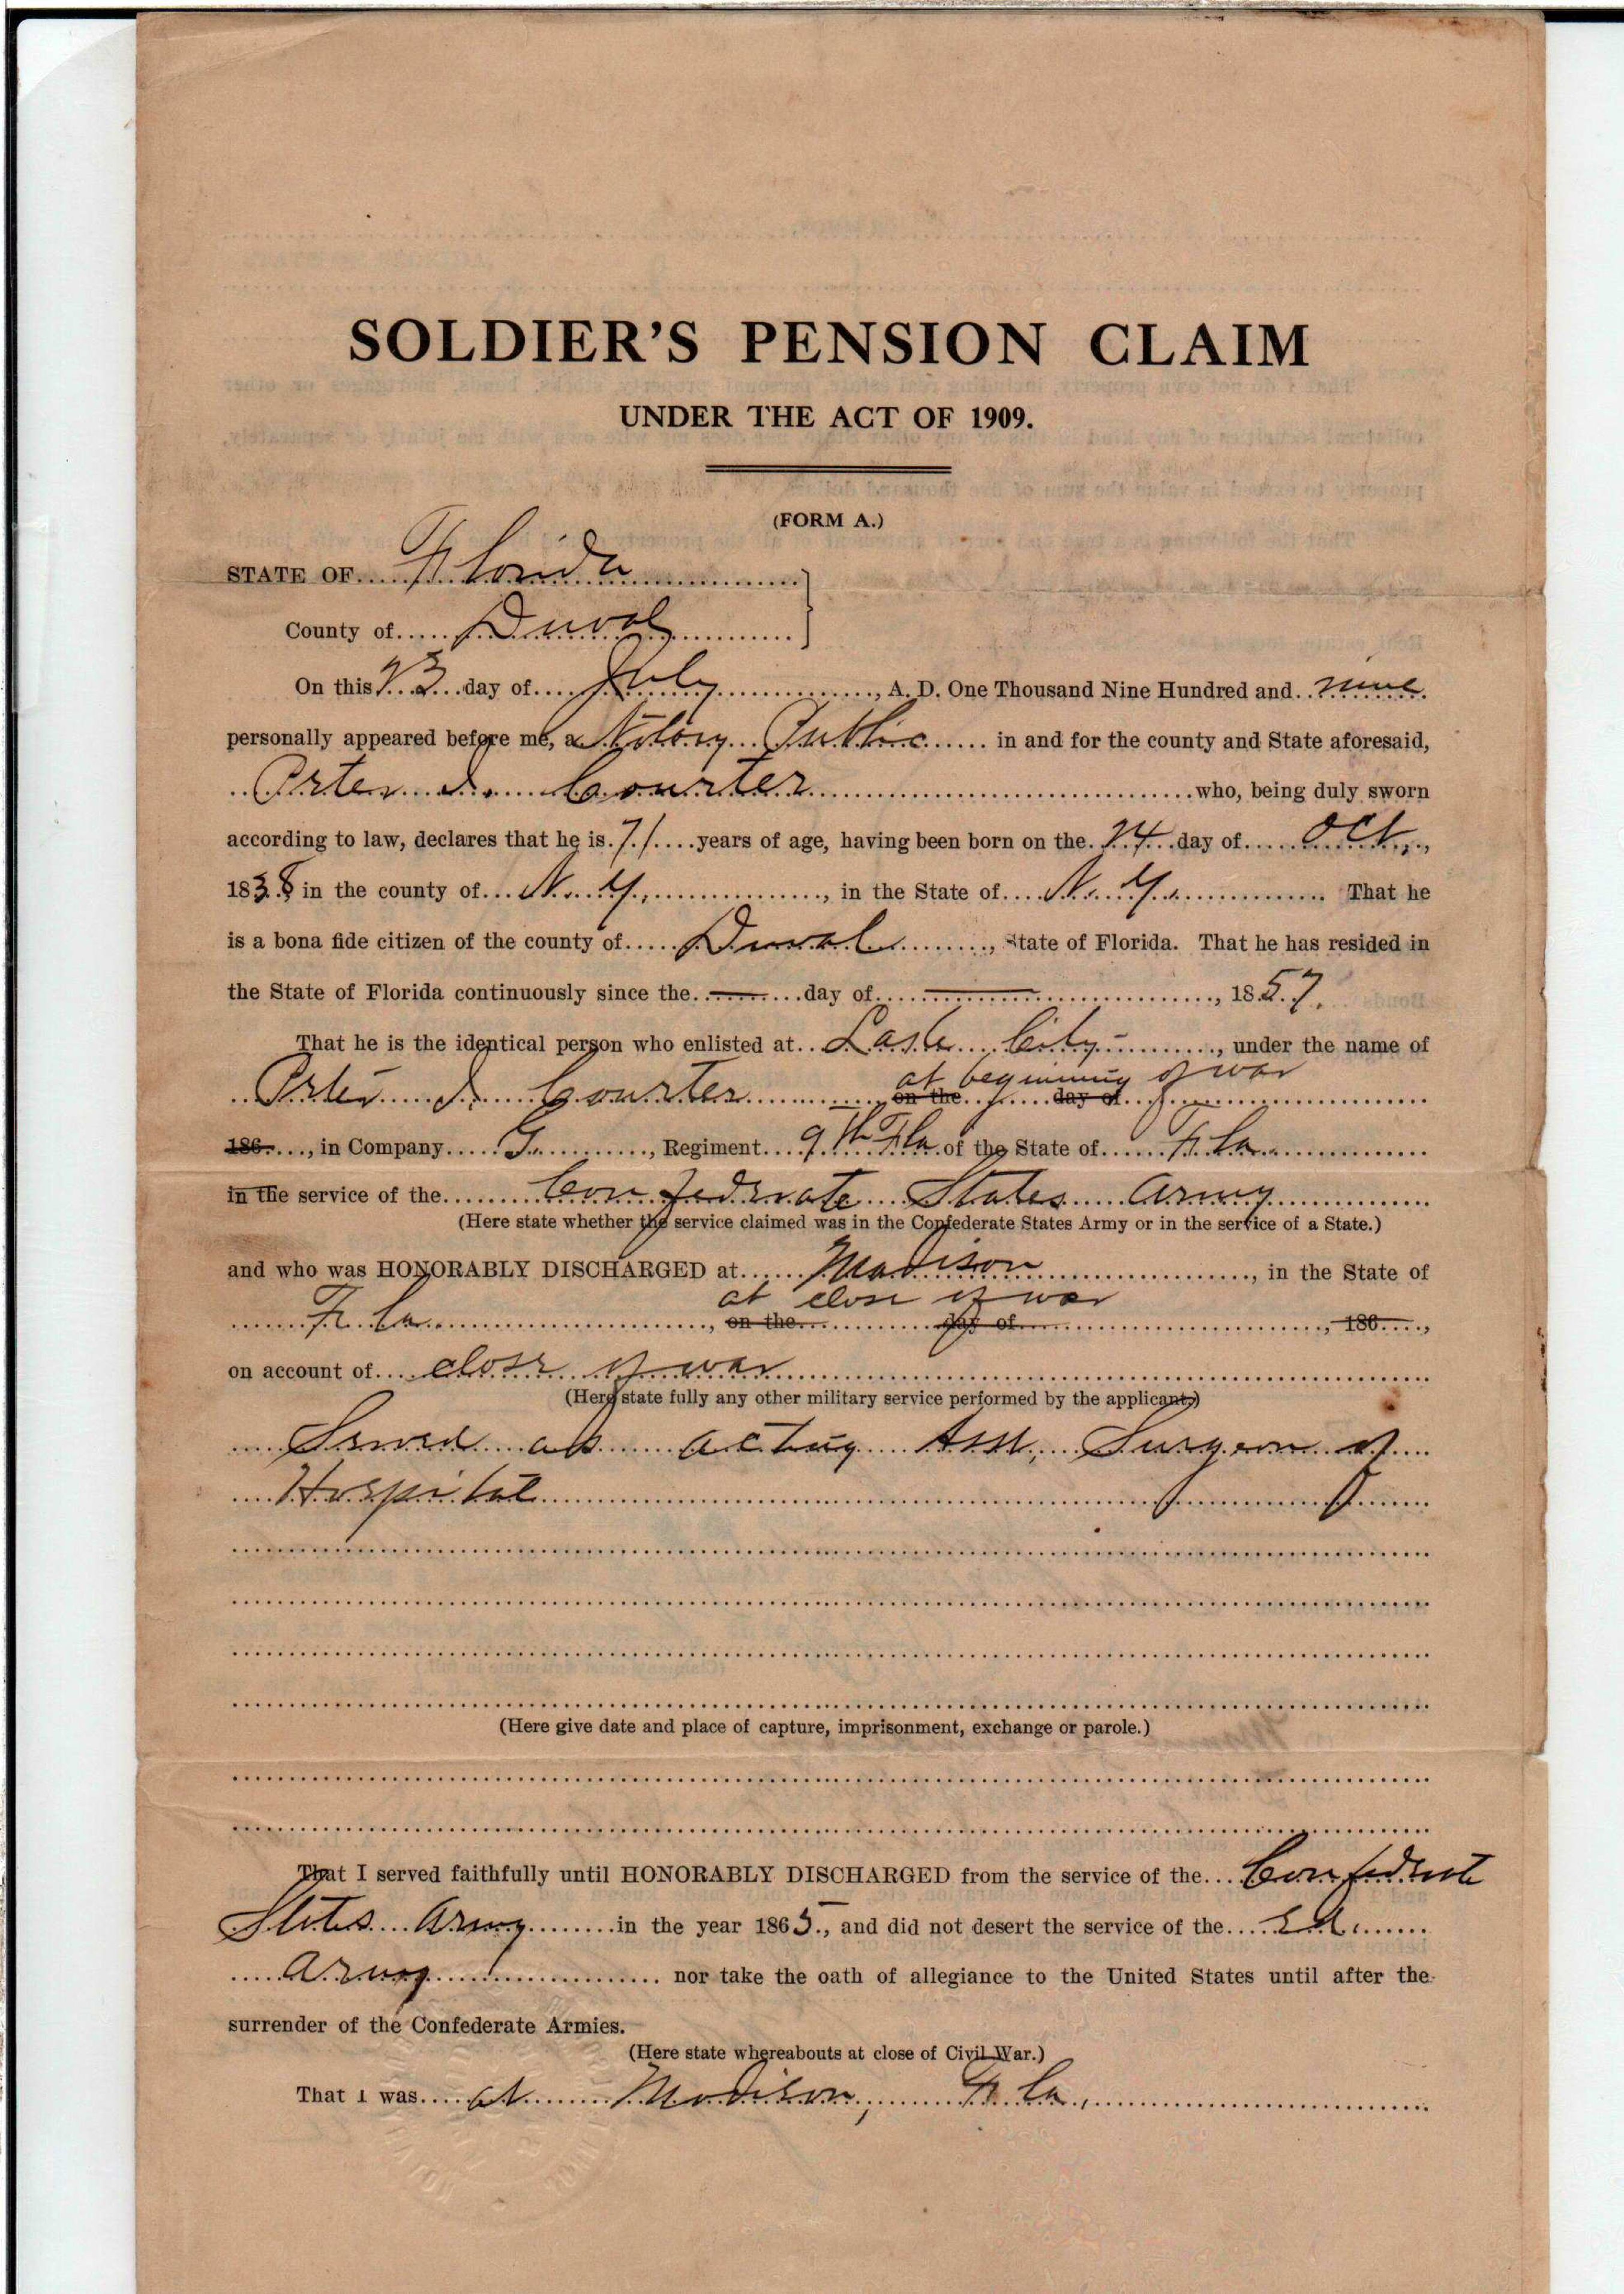 SOLDIER'S PENSION CLAIM
UNDER THE ACT OF 1909.
(FORM A.)
STATE OF Florida
County of Duval
On this 23 day of July, A. D. One Thousand Nine Hundred and nine
personally appeared before me, a Notary Public in and for the county and State aforesaid,
Courter who, being duly sworn
according to law, declares that he is 71 years of age, having been born on the 24 day of Oct,
1838 in the county of N. Y., in the State of N. Y. That he
is a bona fide citizen of the county of Duval, State of Florida. That he has resided in
the State of Florida continuously since the — day of —, 1857.
That he is the identical person who enlisted at Lake City, under the name of
Courter at beginning of war
on the day of
186 , in Company G., Regiment 9th Fla of the State of Fla
in the service of the Confederate States Army
(Here state whether the service claimed was in the Confederate States Army or in the service of a State.)
and who was HONORABLY DISCHARGED at Madison, in the State of
at close of war
Fla, on the day of , 186 ,
on account of close of war
(Here state fully any other military service performed by the applicant.)
Served as acting Asst, Surgeon of
Hospital
(Here give date and place of capture, imprisonment, exchange or parole.)
That I served faithfully until HONORABLY DISCHARGED from the service of the Confederate
States Army in the year 1865., and did not desert the service of the
Army nor take the oath of allegiance to the United States until after the
surrender of the Confederate Armies.
(Here state whereabouts at close of Civil War.)
That I was at Madison, Fla,